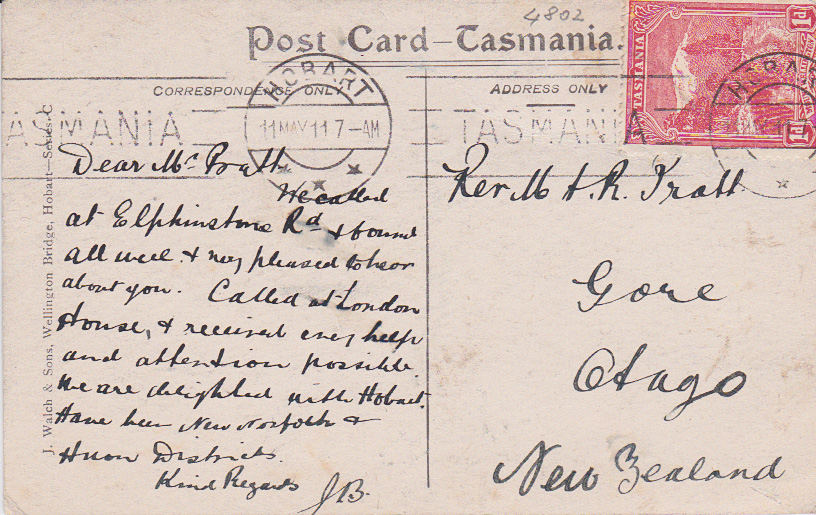 4802
Post Card – Tasmania.
CORRESPONDENCE ONLY
ADDRESS ONLY
TASMANIA
1D
1D
HOBART
11 MAY 11 7-AM
TASMANIA
TASMANIA
HOBA
J. Walch & Sons, Wellington Bridge, Hobart—Series C
Dear Mr Pratt
We called
at Elphinstone Rd & found
all well & very pleased to hear
about you. Called at London
House, & received every help
and attention possible.
We are delighted with Hobart.
Have been New Norfolk &
Huon Districts.
Kind Regards
JB.
Rev. M A. R. Pratt
Gore
Otago
New Zealand